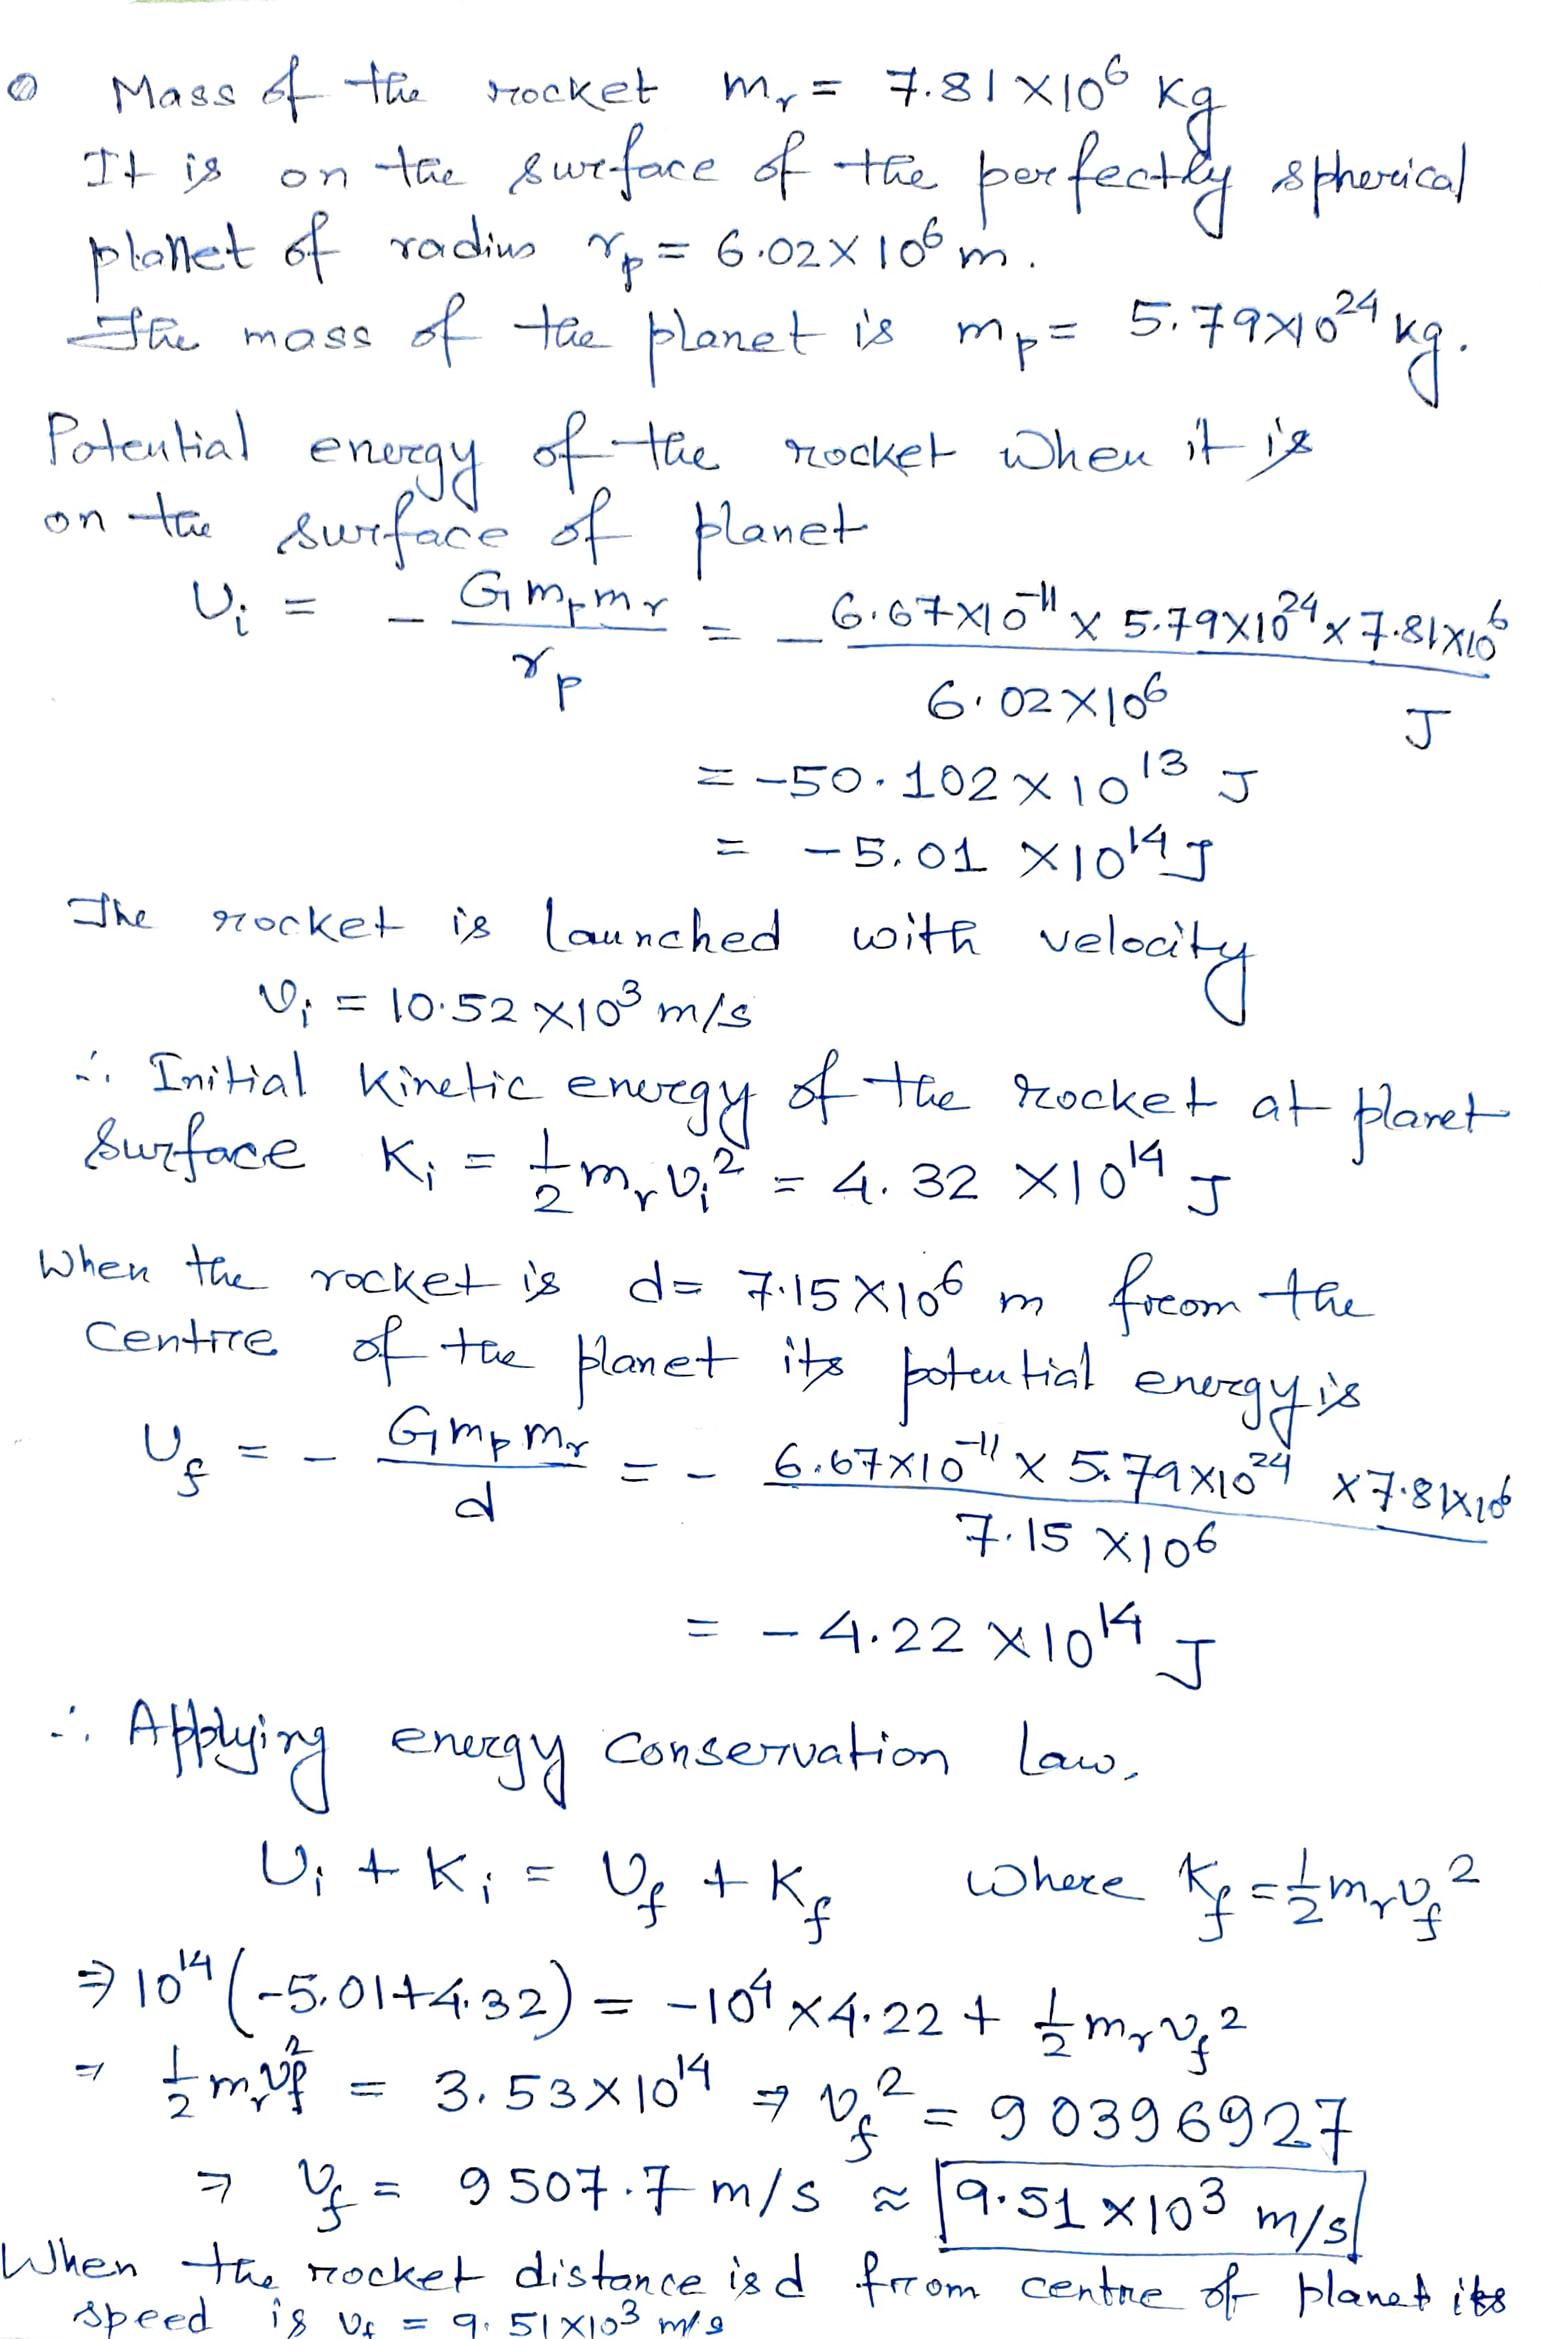 Mass of the rocket m_r = 7.81 × 10^6 kg
It is on the surface of the perfectly spherical
planet of radius r_p = 6.02 × 10^6 m.
The mass of the planet is m_p = 5.79 × 10^24 kg.
Potential energy of the rocket when it is
on the surface of planet
U_i = - G m_p m_r / r_p = - 6.67 × 10^-11 × 5.79 × 10^24 × 7.81 × 10^6 / 6.02 × 10^6 J
= -50.102 × 10^13 J
= -5.01 × 10^14 J
The rocket is launched with velocity
v_i = 10.52 × 10^3 m/s
∴ Initial kinetic energy of the rocket at planet
surface K_i = 1/2 m_r v_i^2 = 4.32 × 10^14 J
When the rocket is d = 7.15 × 10^6 m from the
centre of the planet its potential energy is
U_f = - G m_p m_r / d = - 6.67 × 10^-11 × 5.79 × 10^24 × 7.81 × 10^6 / 7.15 × 10^6
= -4.22 × 10^14 J
∴ Applying energy conservation law,
U_i + K_i = U_f + K_f where K_f = 1/2 m_r v_f^2
⇒ 10^14 (-5.01 + 4.32) = -10^4 × 4.22 + 1/2 m_r v_f^2
⇒ 1/2 m_r v_f^2 = 3.53 × 10^14 ⇒ v_f^2 = 90396927
⇒ v_f = 9507.7 m/s ≈ 9.51 × 10^3 m/s
When the rocket distance is d from centre of planet its
speed is v_f = 9.51 × 10^3 m/s